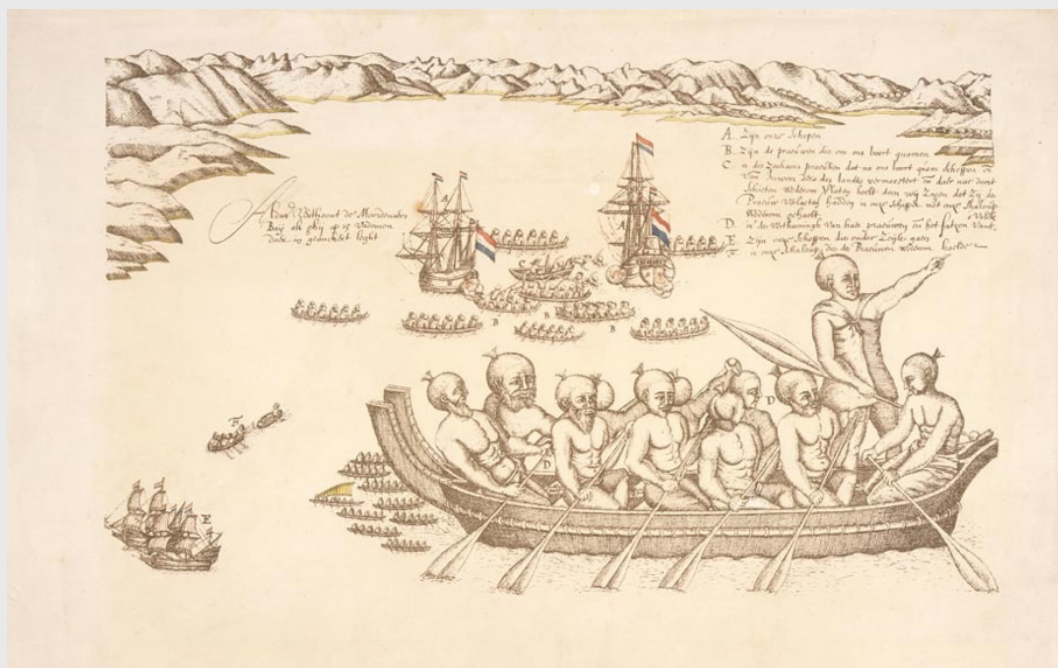 Aldus Verthoont de Moordenaers
Baij als ghij op 15 Vadomen
daer in geanckert leght
A. Zijn onse Schepen
B. Zijn de praeuwen die om ons boort quamen
C. is des Zeehaens praeutien dat na ons boort quam scheppen en
Van Inwoonders des landts vermeestert en daer naer door
schieten wederom Verlaten doen wij Zagen dat Zij de
Praeuw Verlaten hadden is onse Schipper met onse Chaloup
wederom gehaelt
D. is de Verthooningh Van haer praeuwen en het fatzoen Vant Volck
E. Zijn onse Schepen die onder Zeijl gaen
F. is onse Chaloup die de Praeuwen wederom haelde
A
A
B
B
B
D
D
F
E